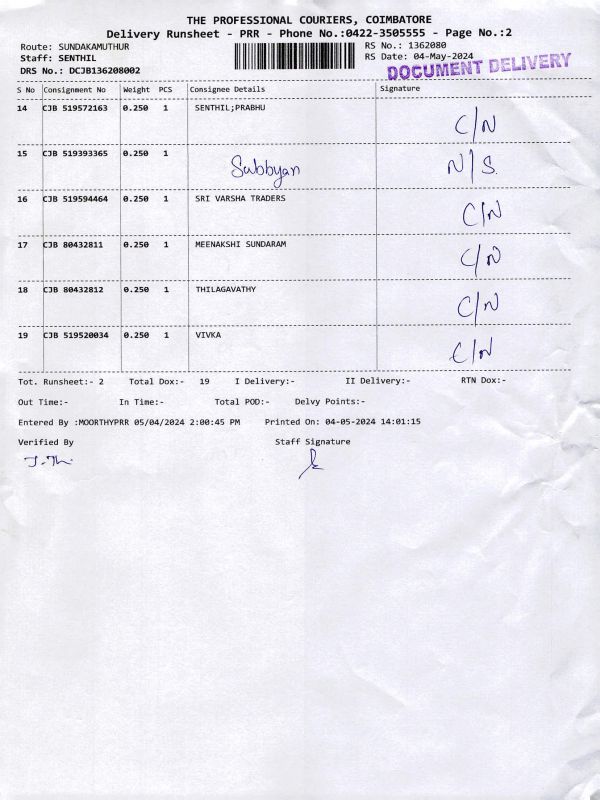 THE PROFESSIONAL COURIERS, COIMBATORE
Delivery Runsheet - PRR - Phone No.:0422-3505555 - Page No.:2
Route: SUNDAKAMUTHUR
RS No.: 1362080
Staff: SENTHIL
RS Date: 04-May-2024
DRS No.: DCJB136208002
DOCUMENT DELIVERY
S No Consignment No Weight PCS Consignee Details Signature
14 CJB 519572163 0.250 1 SENTHIL;PRABHU C/N
15 CJB 519393365 0.250 1 Subbyan N/S
16 CJB 519594464 0.250 1 SRI VARSHA TRADERS C/N
17 CJB 80432811 0.250 1 MEENAKSHI SUNDARAM C/N
18 CJB 80432812 0.250 1 THILAGAVATHY C/N
19 CJB 519520034 0.250 1 VIVKA C/N
Tot. Runsheet:- 2 Total Dox:- 19 I Delivery:- II Delivery:- RTN Dox:-
Out Time:- In Time:- Total POD:- Delvy Points:-
Entered By :MOORTHYPRR 05/04/2024 2:00:45 PM Printed On: 04-05-2024 14:01:15
Verified By Staff Signature